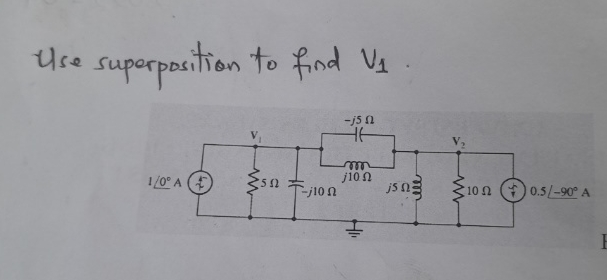 Use superposition to find V1.
-j5 Ω
V1
V2
1/0° A
5 Ω
-j10 Ω
j10 Ω
j5 Ω
10 Ω
0.5/-90° A